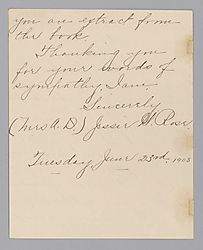 you an extract from
the book.
Thanking you
for your words of
sympathy, I am.
Sincerely
(Mrs A. D.) Jessie W. Rose.
Tuesday June 23rd 1903